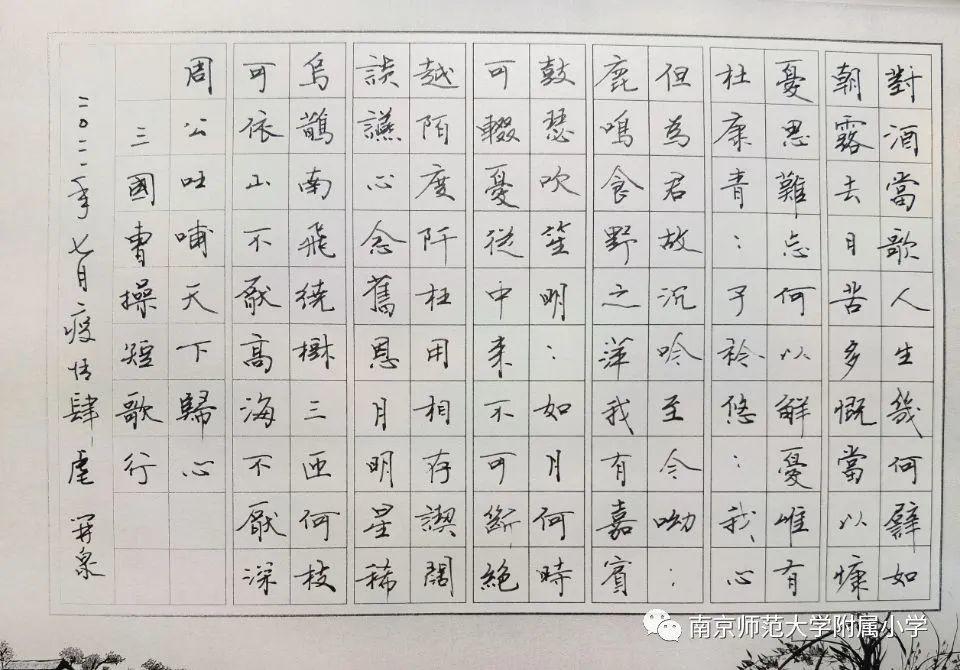 對酒當歌人生幾何譬如
朝露去日苦多慨當以慷
憂思難忘何以解憂唯有
杜康青:子衿悠:我心
但為君故沉吟至今呦:
鹿鳴食野之萍我有嘉賓
鼓瑟吹笙明:如月何時
可輟憂從中來不可斷絕
越陌度阡枉用相存契闊
談讌心念舊恩月明星稀
烏鵲南飛繞樹三匝何枝
可依山不厭高海不厭深
周公吐哺天下歸心
三國曹操短歌行
二〇二一年七月疫情肆虐 泉
南京师范大学附属小学